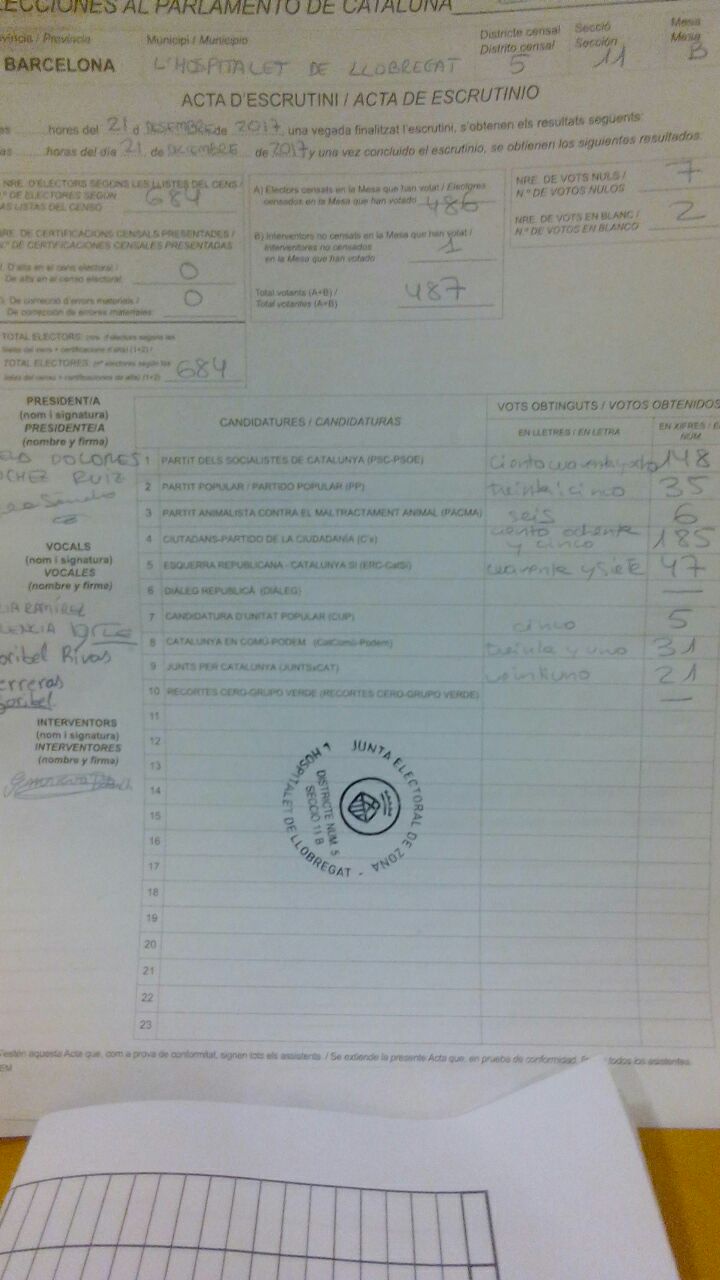 LECCIONES AL PARLAMENTO DE CATALUÑA
Província / Provincia
BARCELONA
Municipi / Municipio
L'HOSPITALET DE LLOBREGAT
Districte censal
Distrito censal
5
Secció
Sección
11
Mesa
Mesa
B
ACTA D'ESCRUTINI / ACTA DE ESCRUTINIO
hores del 21 d DESEMBRE de 2017, una vegada finalitzat l'escrutini, s'obtenen els resultats següents:
horas del día 21 de DICIEMBRE de 2017 y una vez concluido el escrutinio, se obtienen los siguientes resultados:
NRE. D'ELECTORS SEGONS LES LLISTES DEL CENS /
N.º DE ELECTORES SEGÚN
LAS LISTAS DEL CENSO
684
NRE. DE CERTIFICACIONS CENSALS PRESENTADES /
N.º DE CERTIFICACIONES CENSALES PRESENTADAS
D'alta en el cens electoral /
De alta en el censo electoral:
0
De correcció d'errors materials /
De corrección de errores materiales:
0
TOTAL ELECTORS:
TOTAL ELECTORES:
684
A) Electors censats en la Mesa que han votat / Electores
censados en la Mesa que han votado
486
B) Interventors no censats en la Mesa que han votat /
Interventores no censados
en la Mesa que han votado
1
Total votants (A+B) /
Total votantes (A+B)
487
NRE. DE VOTS NULS /
N.º DE VOTOS NULOS
7
NRE. DE VOTS EN BLANC /
N.º DE VOTOS EN BLANCO
2
PRESIDENT/A
(nom i signatura)
PRESIDENTE/A
(nombre y firma)
DOLORES
RUIZ
VOCALS
(nom i signatura)
VOCALES
(nombre y firma)
RAMÍREZ
Rivas
INTERVENTORS
(nom i signatura)
INTERVENTORES
(nombre y firma)
CANDIDATURES / CANDIDATURAS
VOTS OBTINGUTS / VOTOS OBTENIDOS
EN LLETRES / EN LETRA
EN XIFRES / EN NÚM
1 PARTIT DELS SOCIALISTES DE CATALUNYA (PSC-PSOE) ciento cuarenta y ocho 148
2 PARTIT POPULAR / PARTIDO POPULAR (PP) treinta i cinco 35
3 PARTIT ANIMALISTA CONTRA EL MALTRACTAMENT ANIMAL (PACMA) seis 6
4 CIUTADANS-PARTIDO DE LA CIUDADANÍA (C's) ciento ochenta y cinco 185
5 ESQUERRA REPUBLICANA - CATALUNYA SÍ (ERC-CatSí) cuarenta y siete 47
6 DIÀLEG REPUBLICÀ (DIÀLEG) —
7 CANDIDATURA D'UNITAT POPULAR (CUP) cinco 5
8 CATALUNYA EN COMÚ-PODEM (CatComú-Podem) treinta y uno 31
9 JUNTS PER CATALUNYA (JUNTSxCAT) veintiuno 21
10 RECORTES CERO-GRUPO VERDE (RECORTES CERO-GRUPO VERDE) —
11
12
13
14
15
16
17
18
19
20
21
22
23
JUNTA ELECTORAL DE ZONA - HOSPITALET DE LLOBREGAT
DISTRICTE NÚM. 5
SECCIÓ 11 B
estén aquesta Acta que, com a prova de conformitat, signen tots els assistents. / Se extiende la presente Acta que, en prueba de conformidad, todos los asistentes.